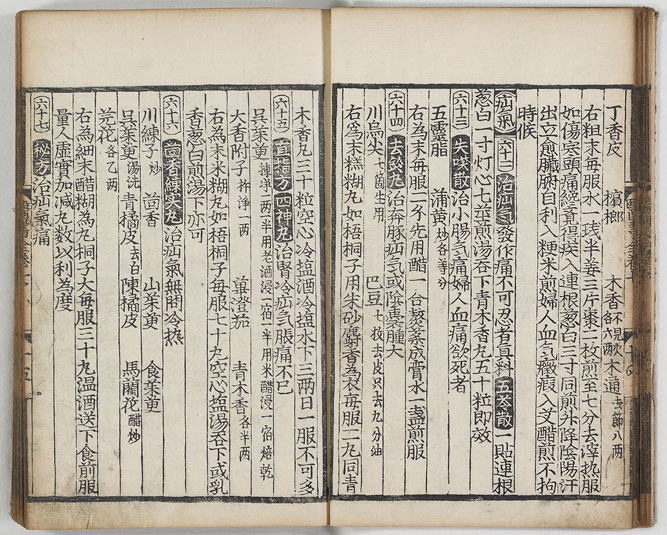 丁香皮 檳榔 木香不見火各六兩 木通去節八兩
右粗末每服水一琖半姜三片棗二枚煎至七分去滓熱服
如傷寒頭痛經竟得疾入連根葱白三寸同煎升降陰陽汗
出立愈臟腑自利入粳米煎婦人血氣癥瘕入艾醋煎不拘
時候
疝氣 六十二 治疝氣發作痛不可忍者真料五苓散一貼連根
葱白一寸灯心七莖煎湯吞下青木香丸五十粒即效
六十三 失笑散治小腸氣痛婦人血痛欲死者
五靈脂 蒲黄炒各等分
右為末每服二分先用醋一合熬藥成膏水一盞煎服
六十四 去鈴丸治奔豚疝氣或陰囊腫大
川烏尖七箇生用 巴豆七枚去皮只去九分油
右為末糕糊丸如梧桐子用朱砂麝香為衣每服二丸同青
木香丸三十粒空心冷塩酒冷塩水下三兩日一服不可多
六十五 四神丸治腎冷疝氣脹痛不已
吳茱萸揀淨二兩半用老酒浸一宿一半用米醋浸一宿焙乾
大香附子杵淨一兩 蓽澄茄 青木香各半兩
右為末米糊丸如梧桐子每服七十丸空心塩湯吞下或乳
香葱白煎湯下亦可
六十六 茴香練實丸治疝氣無問冷熱
川練子炒 茴香 山茱萸 食茱萸
吳茱萸湯洗 青橘皮去白 陳橘皮 馬藺花醋炒
芫花各乙兩
右為細末醋糊為丸桐子大每服三十丸温酒送下食前服
量人虛實加減丸數以利為度
六十七 秘方治疝氣痛